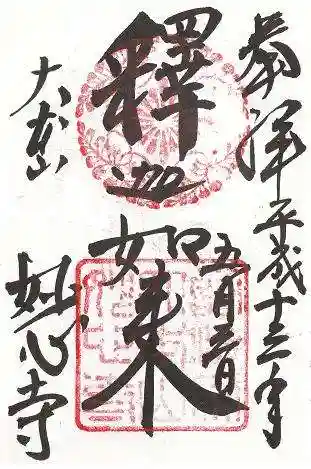 奉拝 平成十三年
五月三日
釋迦如来
大本山
妙心寺